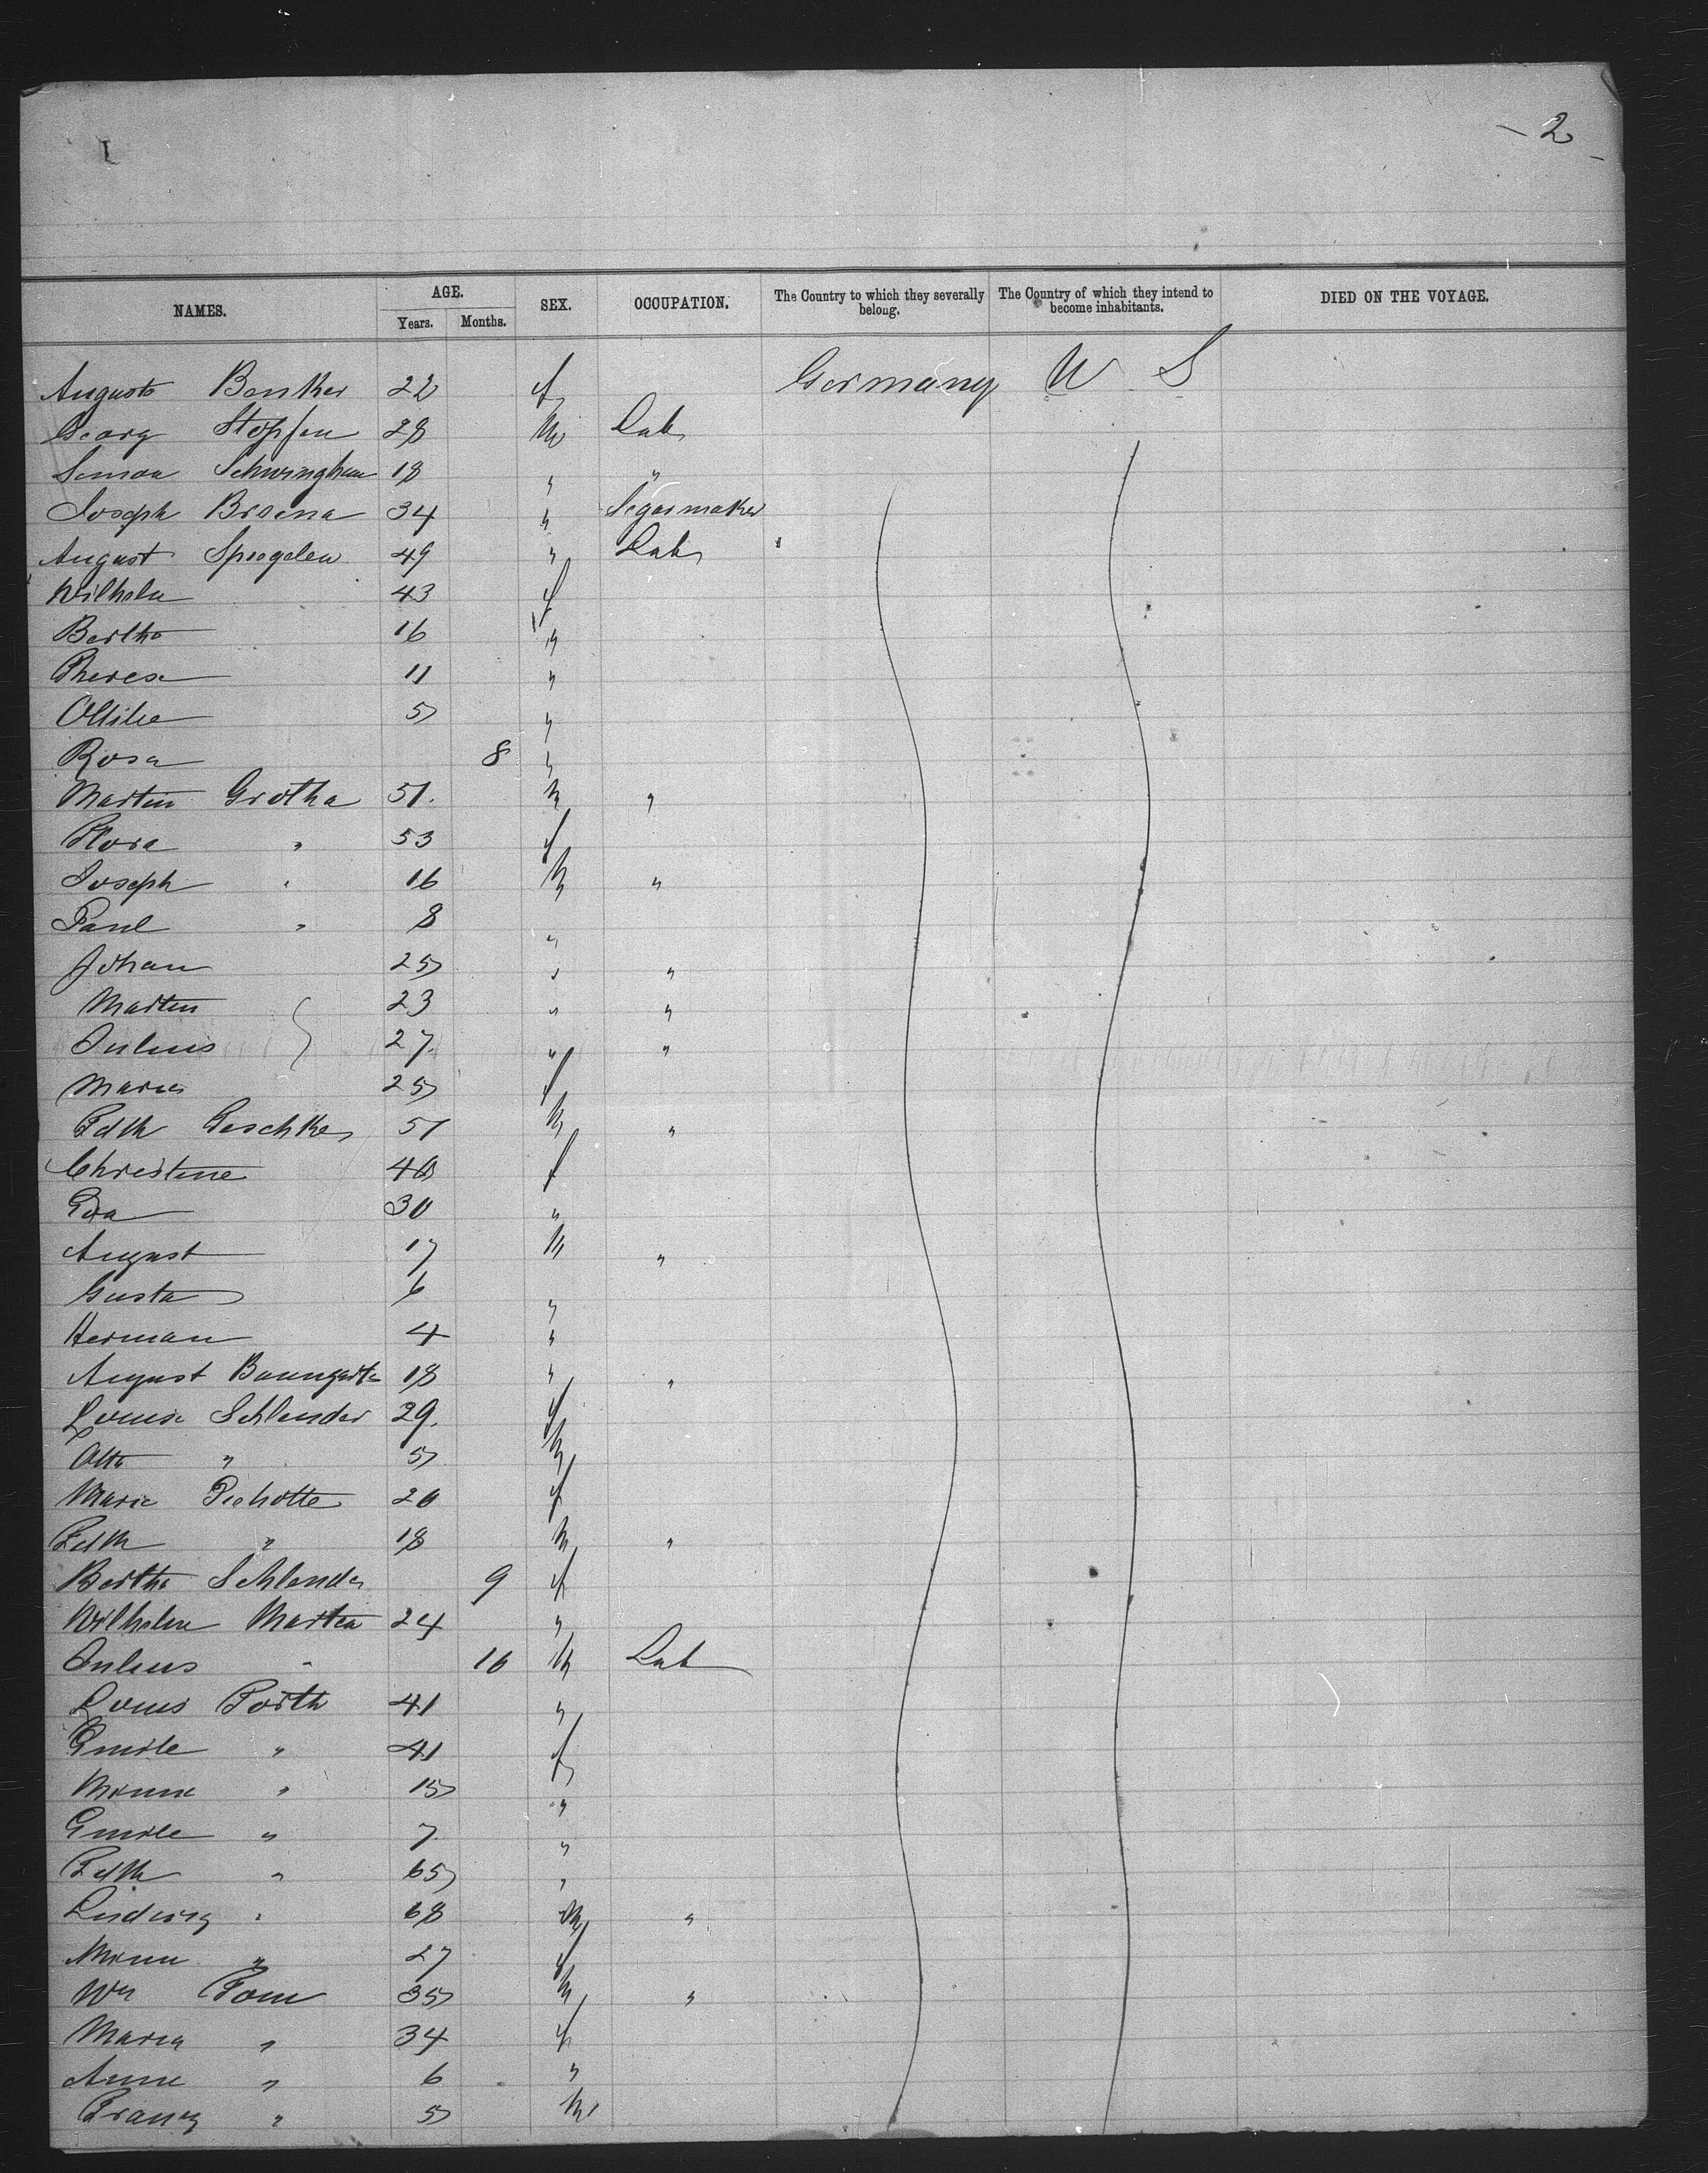 - 2 -
NAMES. AGE. Years. Months. SEX. OCCUPATION. The Country to which they severally belong. The Country of which they intend to become inhabitants. DIED ON THE VOYAGE.
Augusta Benker 22 f Germany U S
Georg Stopfen 28 m Lab
Simon Schwingham 18 "
Joseph Broena 34 " Segarmaker
August Spiegelew 49 " Lab
Wilhelm 43 f
Bertha 16 "
Theresa 11 "
Ottilie 5 "
Rosa 8 "
Martin Grotha 51. m "
Flora " 53 f
Joseph " 16 m "
Paul " 8 "
Johan 25 " "
Martin 23 " "
Julius 27. " "
Maria 25 f
Fdk Geschke 51 m "
Christine 40 f
Eva 30 "
August 17 m "
Gusta 6 "
Herman 4 "
August Baumgarte 18 " "
Louise Schlender 29. f
Otto " 5 m
Marie Piehotte 20 f
Fdk " 18 m "
Bertha Schlender 9 f
Wilhelm Marten 24 "
Julius " 10 m Lab
Louis Porth 41 "
Emile " 41 f
Minna " 15 "
Emile " 7 "
Fdk " 65 "
Ludwig " 68 m "
Minn " 27 f
Wm Pom 35 m "
Maria " 34 f
Anne " 6 "
Franz " 5 m